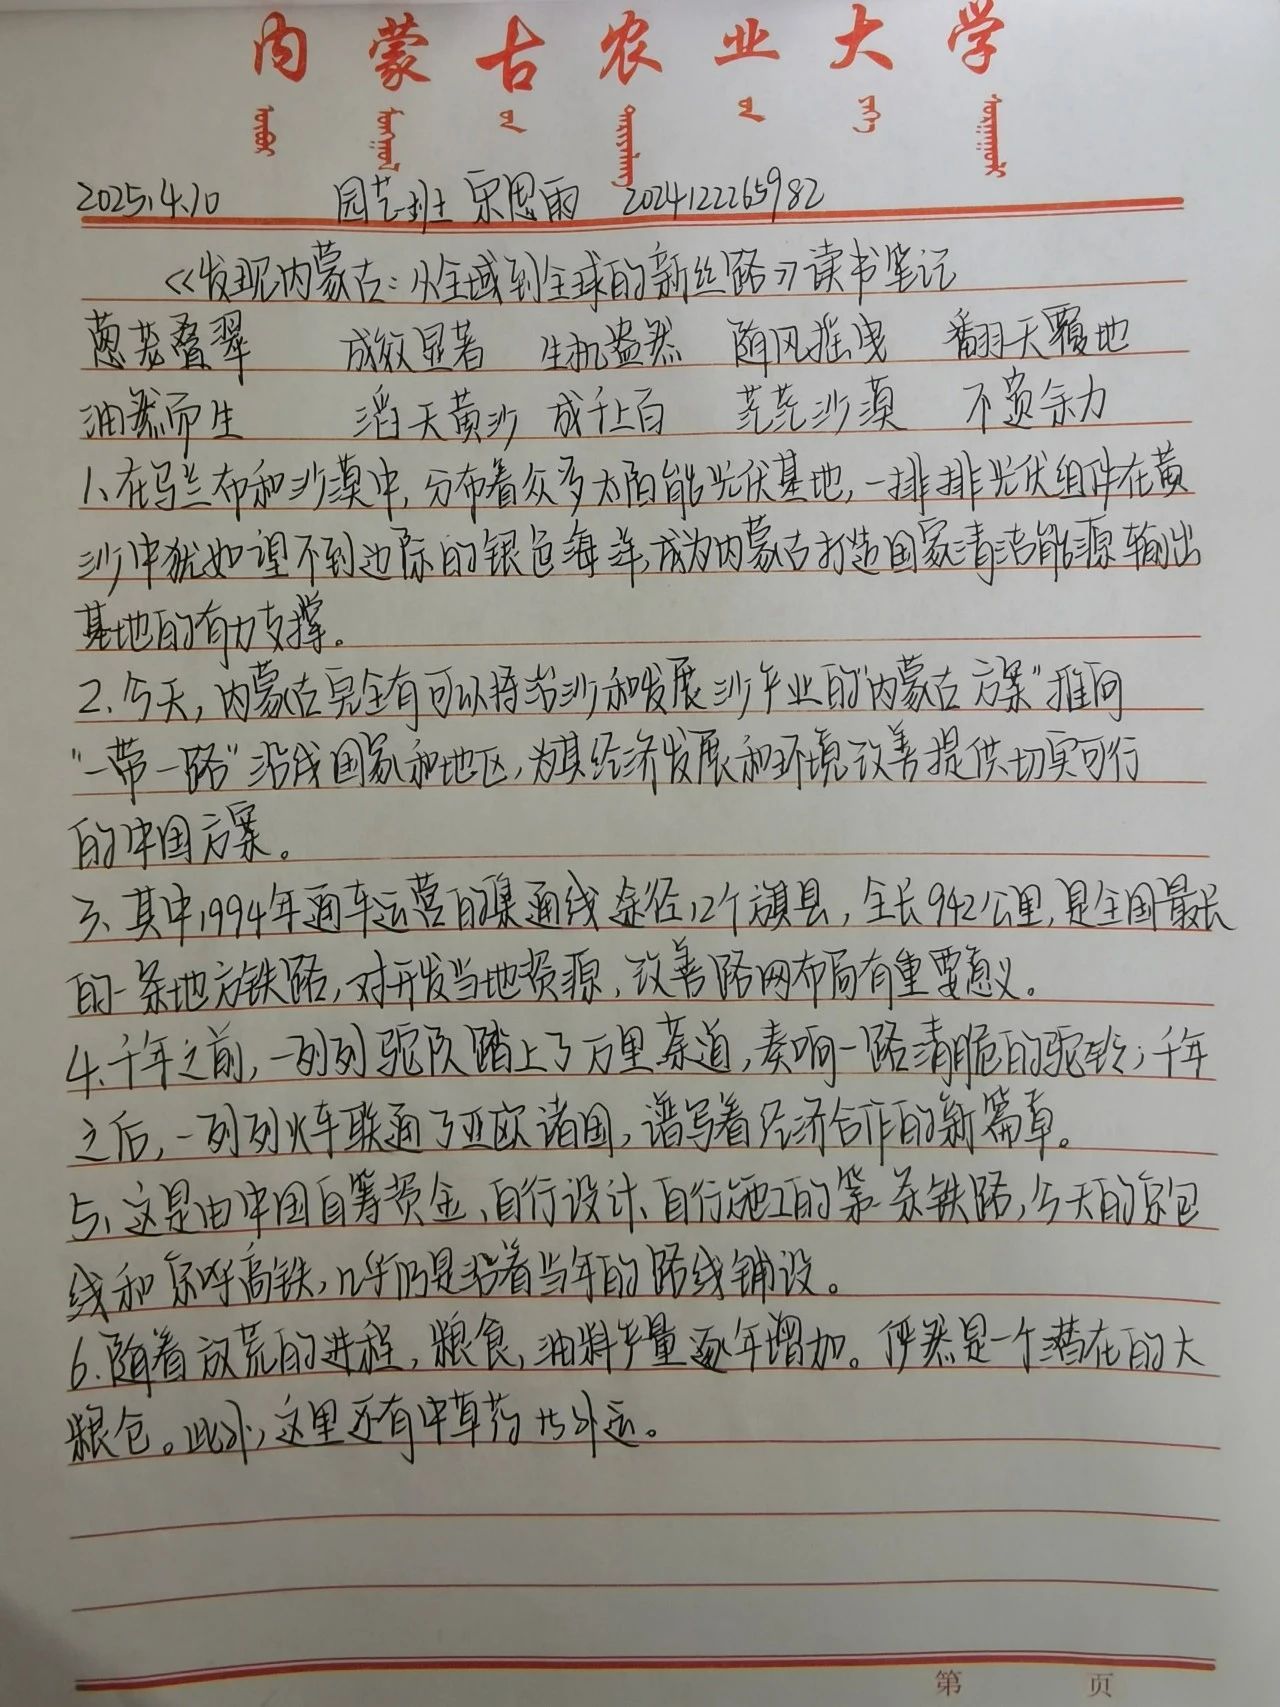 内蒙古农业大学
2025.4.10 园艺班 宋思雨 2024122265982
《发现内蒙古：从全域到全球的新丝路》读书笔记
葱茏叠翠 成效显著 生机盎然 随风摇曳 翻天覆地
油然而生 滔天黄沙 成千上百 茫茫沙漠 不遗余力
1、在乌兰布和沙漠中，分布着众多太阳能光伏基地，一排排光伏组件在黄
沙中犹如望不到边际的银色海洋，成为内蒙古打造国家清洁能源输出
基地的有力支撑。
2.今天，内蒙古完全有可以将治沙和发展沙产业的“内蒙古方案”推向
“一带一路”沿线国家和地区，为其经济发展和环境改善提供切实可行
的中国方案。
3、其中，1994年通车运营的集通线途径12个旗县，全长942公里，是全国最长
的一条地方铁路，对开发当地资源，改善路网布局有重要意义。
4、千年之前，一列列驼队踏上了万里茶道，奏响一路清脆的驼铃；千年
之后，一列列火车联通了亚欧诸国，谱写着经济合作的新篇章。
5、这是由中国自筹资金、自行设计、自行施工的第一条铁路，今天的京包
线和京呼高铁，几乎仍是沿着当年的路线铺设。
6.随着放荒的进程，粮食，油料产量逐年增加。俨然是一个潜在的大
粮仓。此外，这里还有中草药外运。
第 页